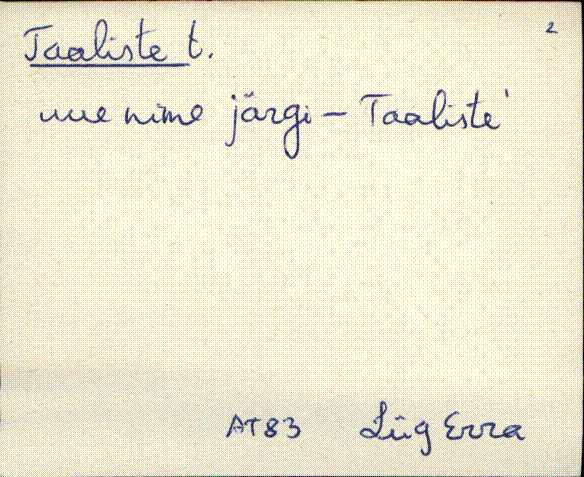 Taaliste t. 2
uue nime järgi – Taaliste'
AT83 Lüg Erra